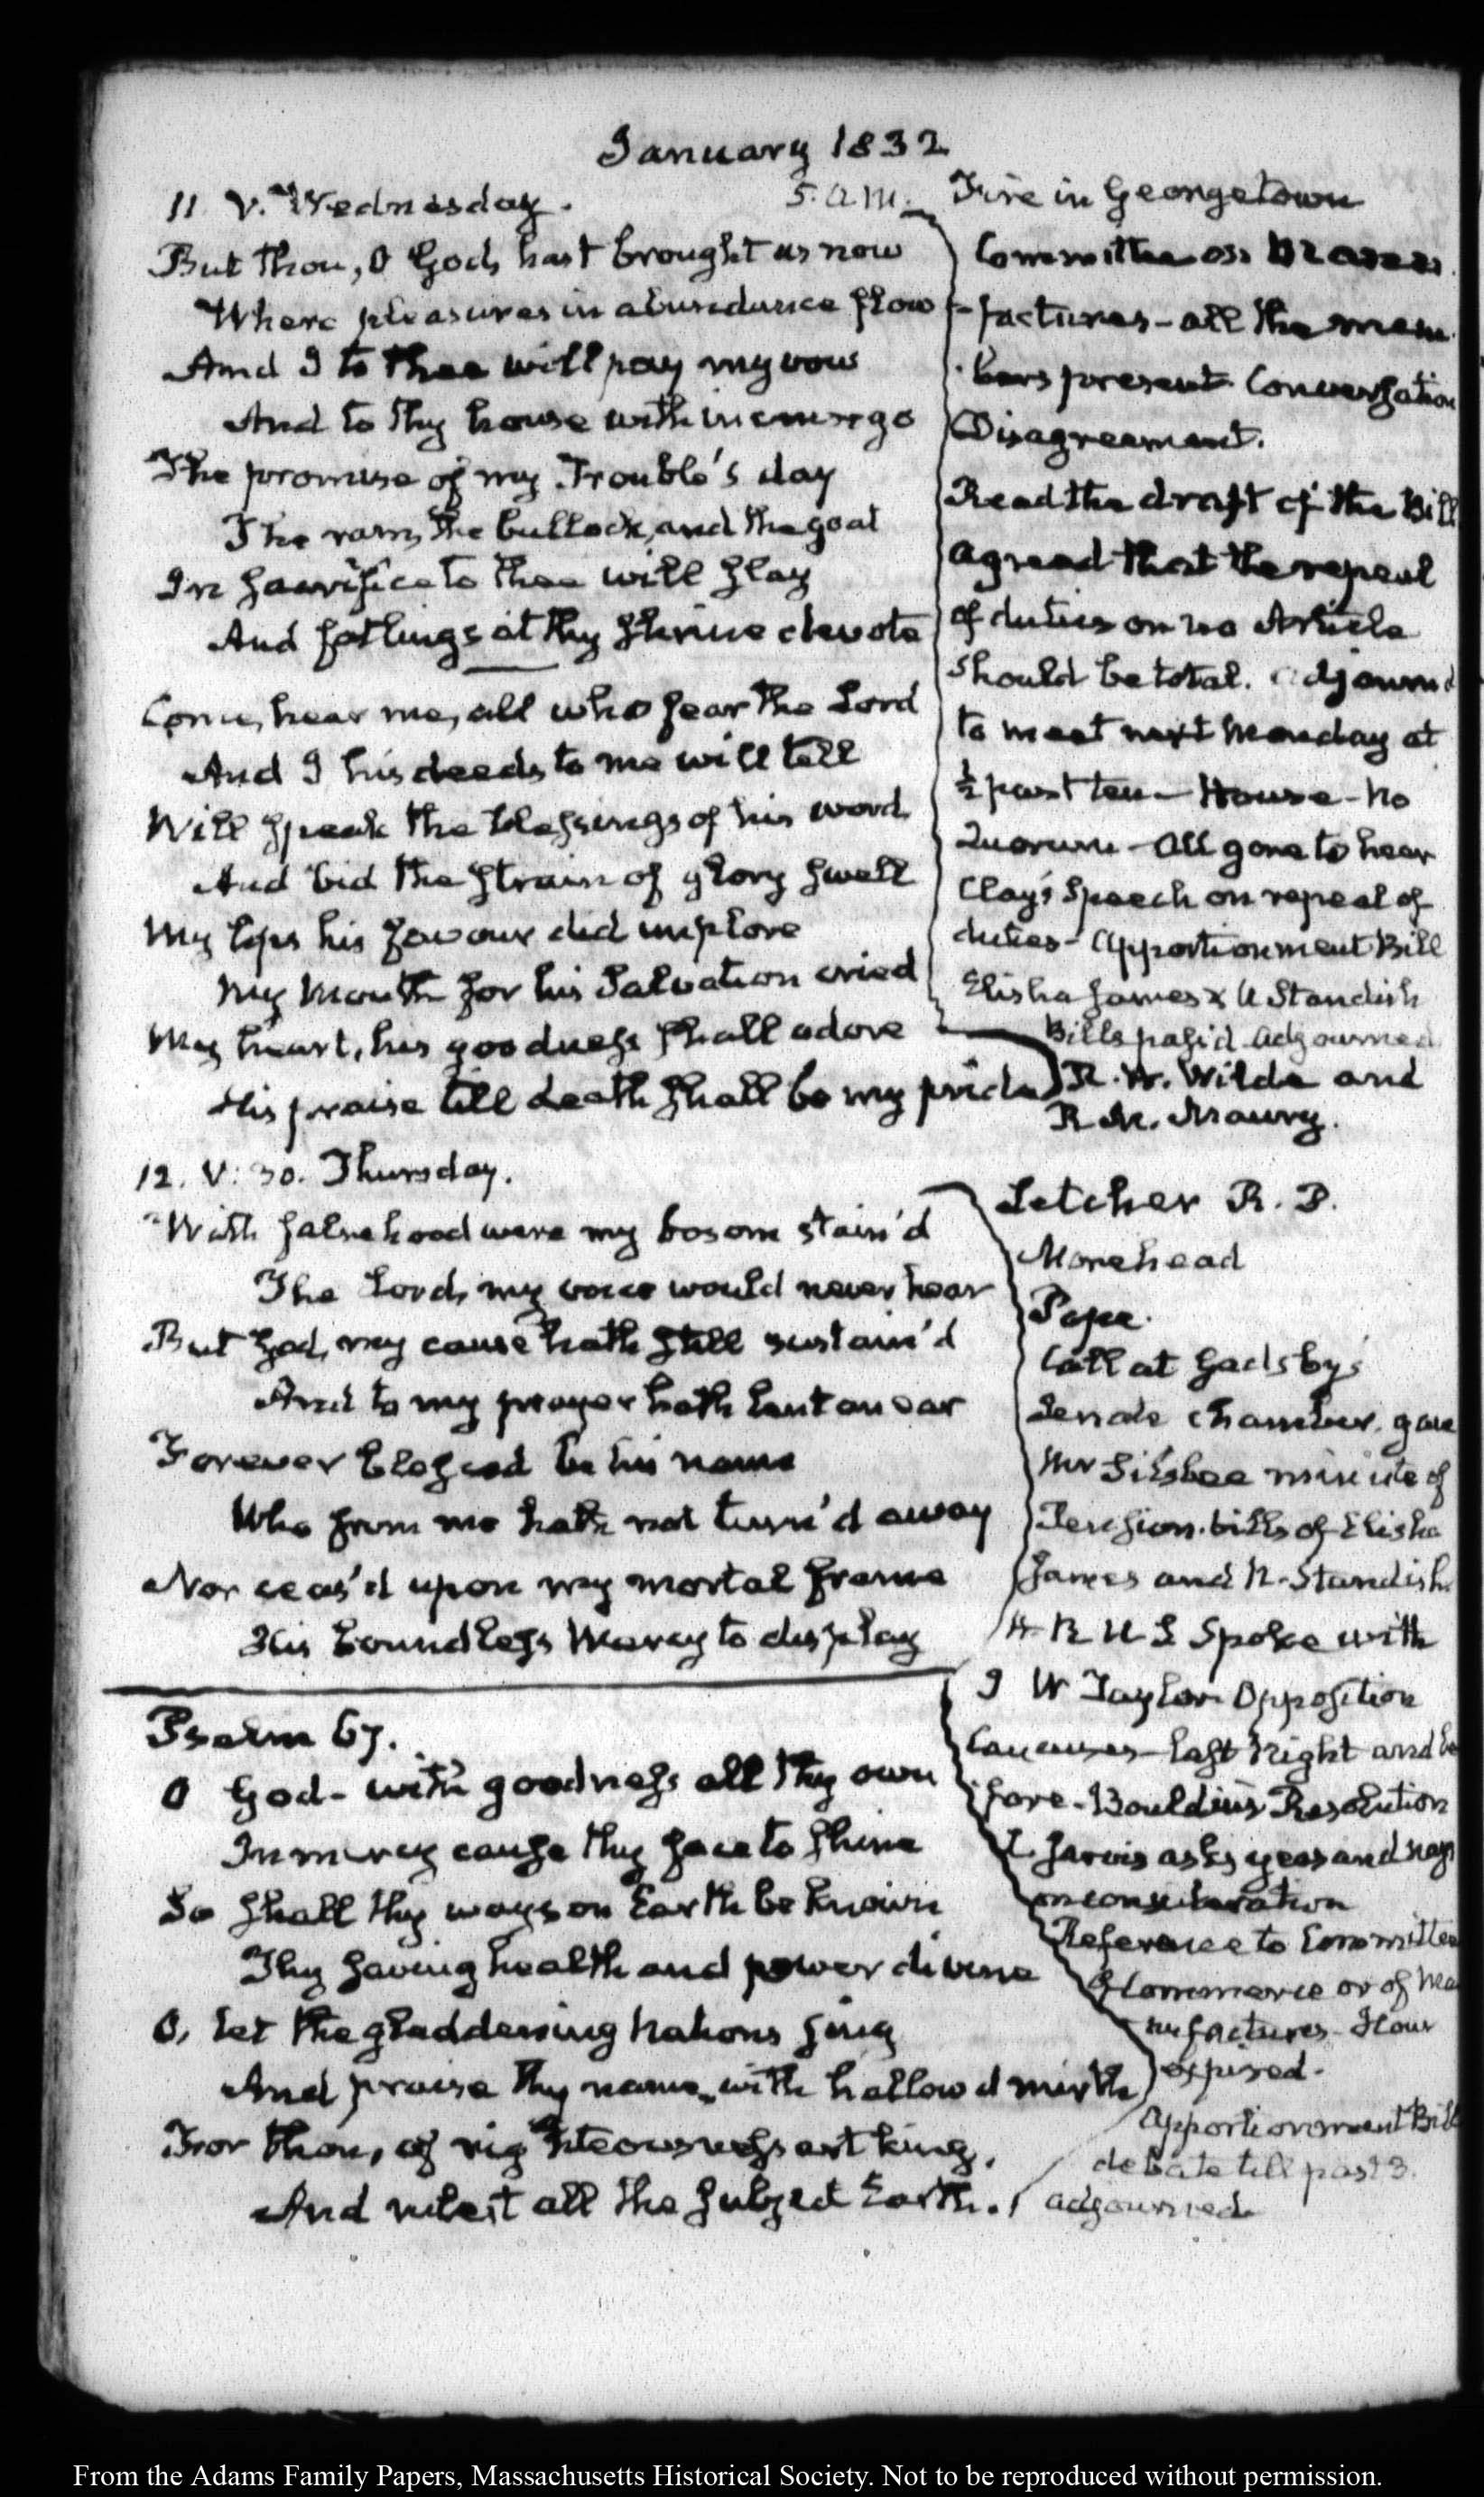 January 1832
11. V. Wednesday.
But thou, O God, hast brought us now
Where pleasures in abundance flow
And I to thee will pay my vow
And to thy house with incense go
The promise of my Trouble's day
The ram, the bullock, and the goat
In sacrifice to thee will slay
And fatlings at thy shrine devote
Come, hear me, all who fear the Lord
And I his deeds to me will tell
Will speak the blessings of his word
And bid the strain of glory swell
My lips his favour did implore
My mouth for his Salvation cried
My heart, his goodness shall adore
His praise till death shall be my pride
5. a.m. Fire in Georgetown
Committee on Manu-
factures - all the mem-
bers present Conversation
Disagreement.
Read the draft of the Bill
agreed that the repeal
of duties on no Article
should be total. adjourn'd
to meet next Monday at
½ past ten - House - No
Quorum - All gone to hear
Clay's Speech on repeal of
duties - Apportionment Bill
Elisha James & Standish
Bills pass'd adjourned
R. W. Wilde and
Maury.
12. V: 30. Thursday.
With falsehood were my bosom stain'd
The Lord, my voice would never hear
But God, my cause hath still sustain'd
And to my prayer hath lent an ear
Forever blessed be his name
Who from me hath not turn'd away
Nor ceas'd upon my mortal frame
His boundless Mercy to display
Psalm 67.
O God - with goodness all thy own
In mercy cause thy face to shine
So shall thy ways on Earth be known
Thy saving health and power divine
O, let the gladdening Nations sing
And praise thy name, with hallow'd mirth
For thou, of righteousness art king,
And rulest all the subject Earth.
Letcher R. P.
Morehead
Pope.
Call at Gadsby's
Senate chamber. gave
Mr Silsbee minute of
Pension bills of Elisha
James and Standish.
H. R. U. S. Spoke with
J W Taylor Opposition
Caucuses - last Night and be
fore - Bouldin's Resolution
L. Jarvis asks yeas and nays
on consideration
Reference to Committee
of Commerce or of Ma
nufactures - Hour
expired.
Apportionment Bill
debate till past 3.
adjourned
From the Adams Family Papers, Massachusetts Historical Society. Not to be reproduced without permission.